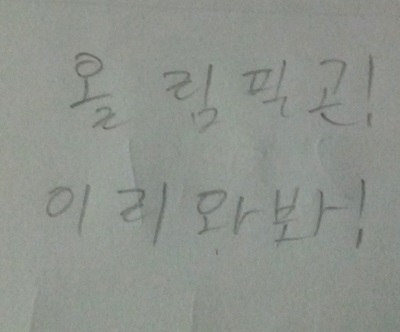 올림픽곤!
이리와봐!